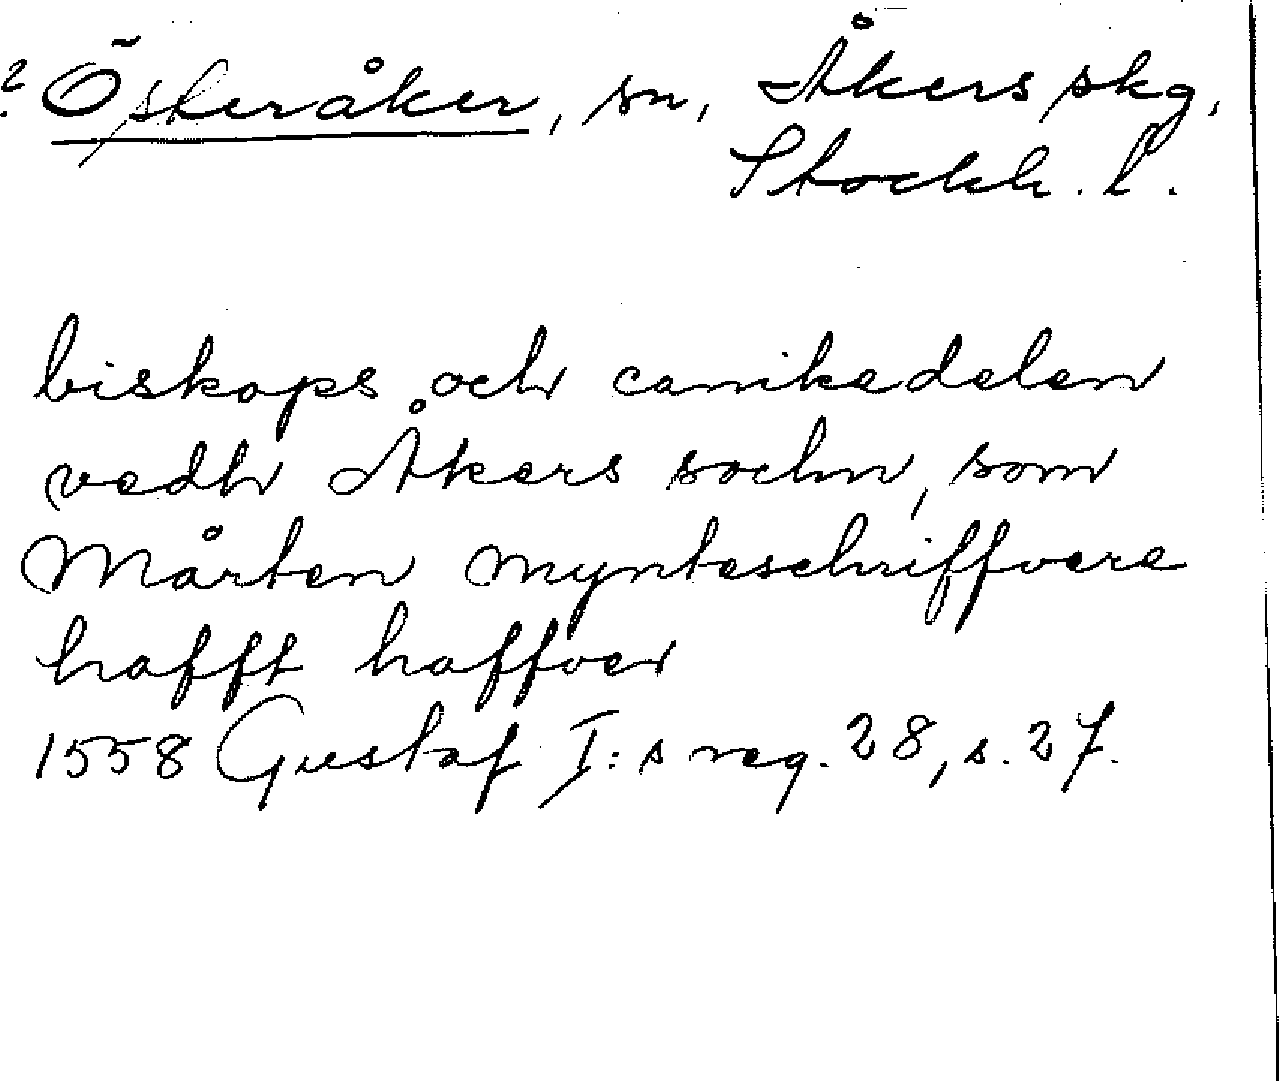 ? Österåker, sn, Åkers skg,
Stockh. l.
biskops och canikedelen
vedh Åkers sochn, som
Mårten mynteschriffvere
hafft haffver
1558 Gustaf I:s reg. 28, s. 27.